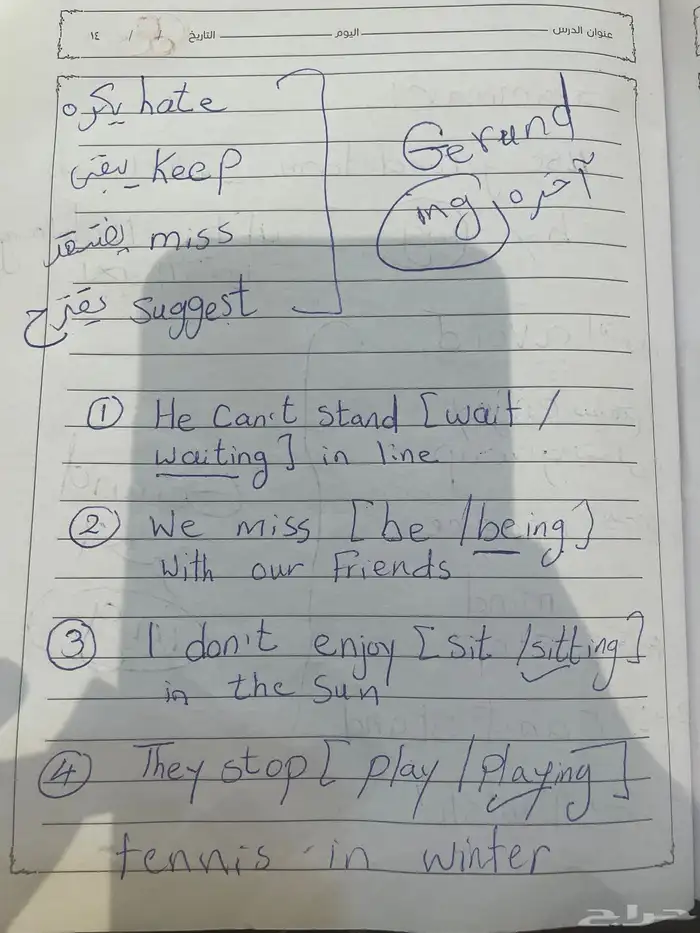 عنوان الدرس اليوم التاريخ / / ١٤
يكره hate
يبقى Keep
يفتقد miss
يقترح suggest
Gerund
آخره
ing
① He can't stand [wait /
waiting] in line
② We miss [be / being]
with our Friends
③ I don't enjoy [sit /sitting]
in the sun
④ They stop [play / playing]
tennis in winter
حراج